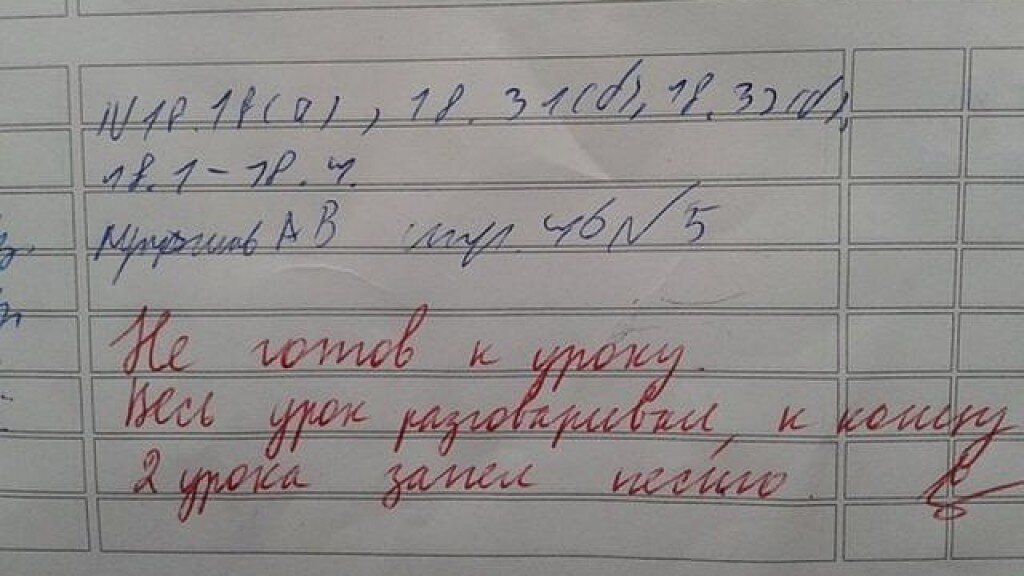 N 18.18(а), 18.31(б), 18.32(б),
18.1-18.4.
АВ стр. 46 N 5
Не готов к уроку.
Весь урок разговаривал, к концу
2 урока запел песню.